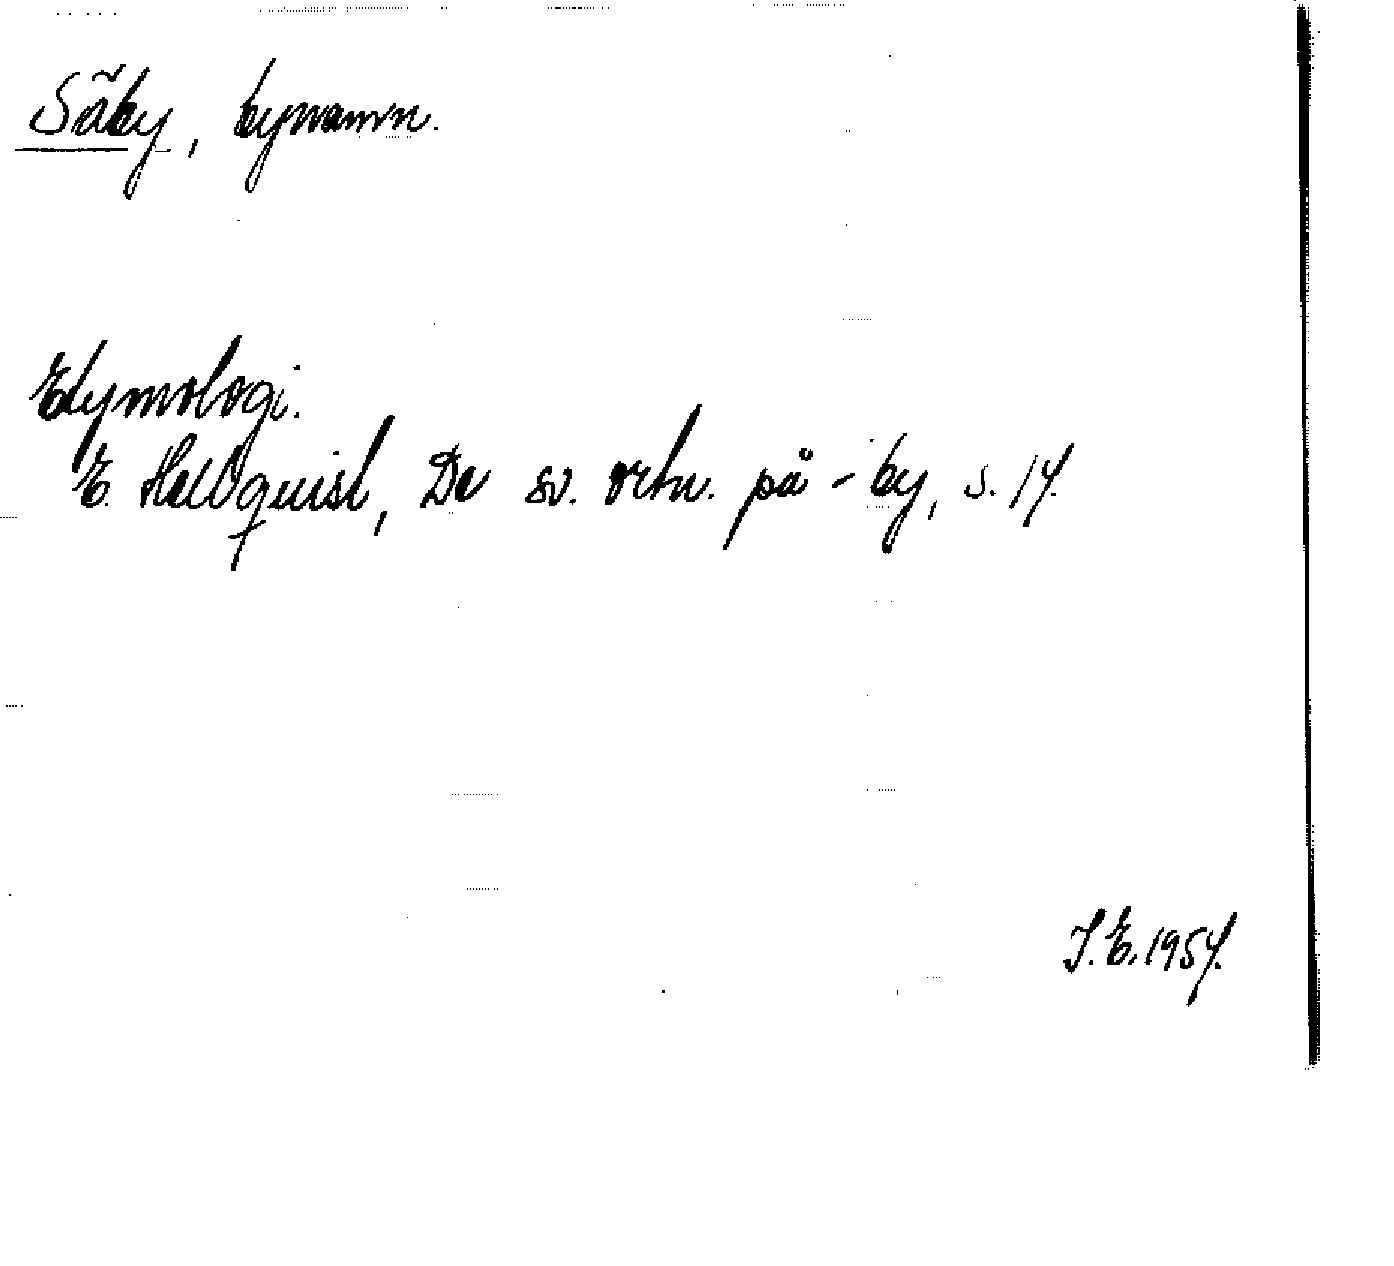 Säby, bynamn.
Etymologi.
E. Hellquist, De sv. ortn. på -by, s. 14.
J. E. 1954.